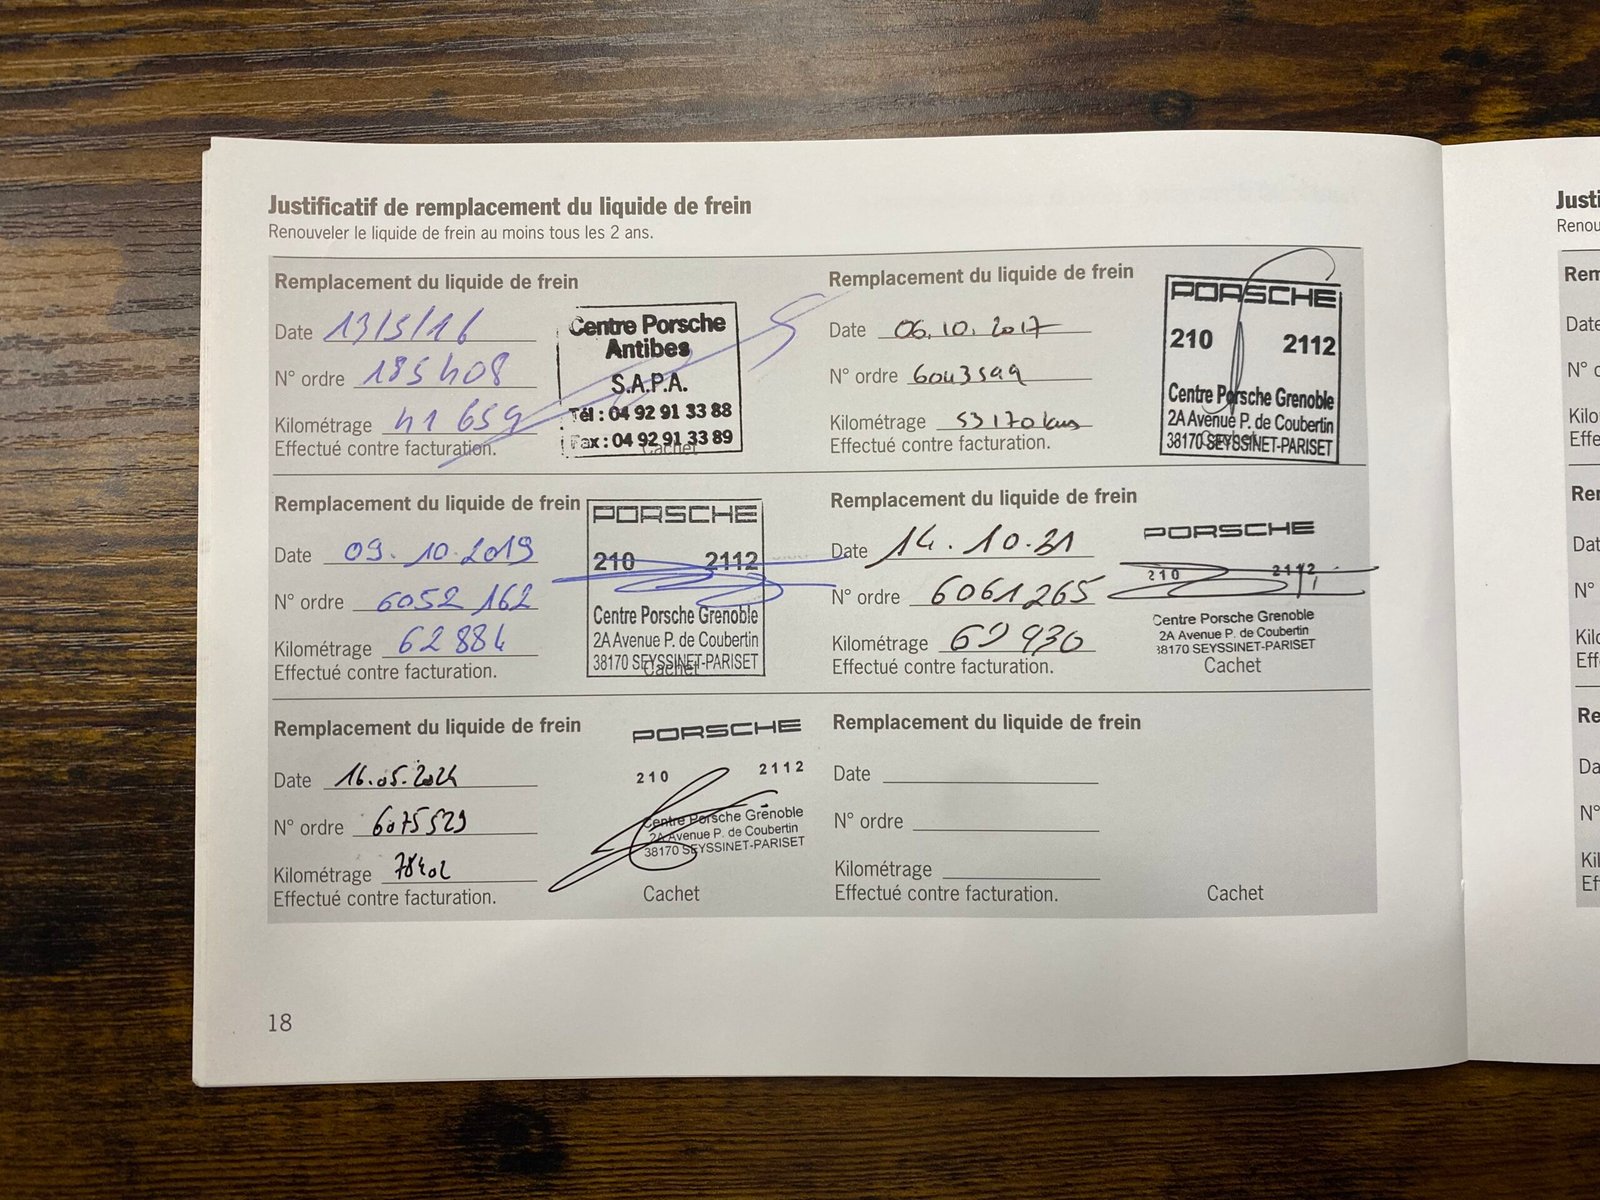 Justificatif de remplacement du liquide de frein
Renouveler le liquide de frein au moins tous les 2 ans.
Remplacement du liquide de frein
Date 13/5/16
N° ordre 185408
Kilométrage 41 659
Effectué contre facturation.
Centre Porsche
Antibes
S.A.P.A.
Tél : 04 92 91 33 88
Fax : 04 92 91 33 89
Cachet
Remplacement du liquide de frein
Date 06.10.2017
N° ordre 6043599
Kilométrage 53170 kms
Effectué contre facturation.
PORSCHE
210 2112
Centre Porsche Grenoble
2A Avenue P. de Coubertin
38170 SEYSSINET-PARISET
Cachet
Remplacement du liquide de frein
Date 09.10.2019
N° ordre 6052 162
Kilométrage 62 884
Effectué contre facturation.
PORSCHE
210 2112
Centre Porsche Grenoble
2A Avenue P. de Coubertin
38170 SEYSSINET-PARISET
Cachet
Remplacement du liquide de frein
Date 14.10.21
N° ordre 6061265
Kilométrage 69 930
Effectué contre facturation.
PORSCHE
210 2112
Centre Porsche Grenoble
2A Avenue P. de Coubertin
38170 SEYSSINET-PARISET
Cachet
Remplacement du liquide de frein
Date 16.05.2024
N° ordre 6075529
Kilométrage 78402
Effectué contre facturation.
PORSCHE
210 2112
Centre Porsche Grenoble
2A Avenue P. de Coubertin
38170 SEYSSINET-PARISET
Cachet
Remplacement du liquide de frein
Date
N° ordre
Kilométrage
Effectué contre facturation.
Cachet
18